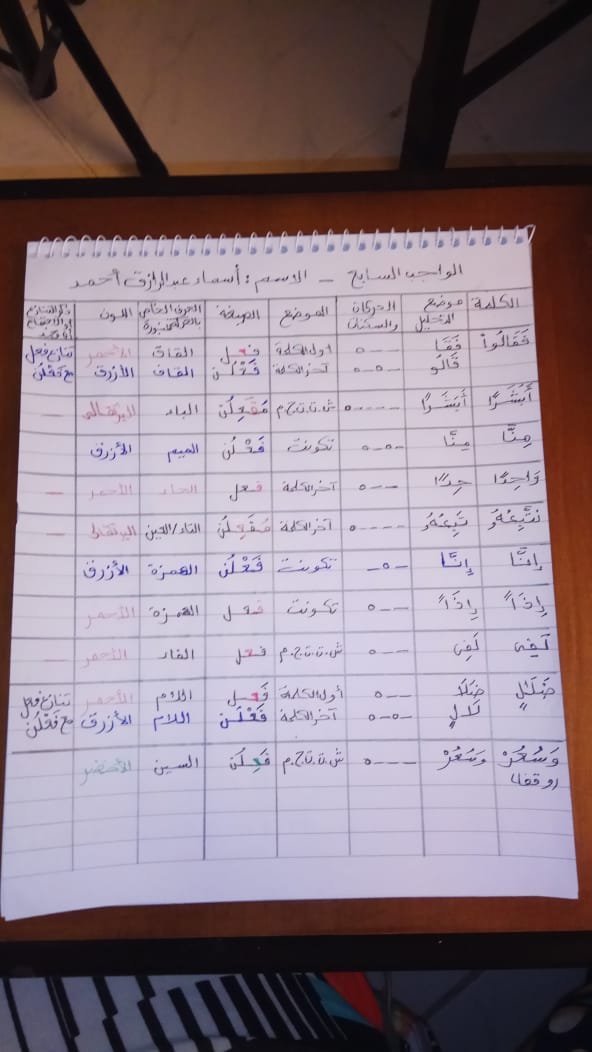 الواجب السابع – الاسم : أسماء عبد الرازق أحمد
الكلمة موضع التخليل الحركات والسكنات الموضع الصيغة الحرف الخاص اللون
فَقَالُواْ فَقَا ---o أول الكلمة فعل القاف الأحمر تنازع فعل
قَالُو -o-o آخر الكلمة فَعْلُن القاف الأزرق مع فَعْلُن
أَبَشَرًا أَبَشَرًا ----o ش.ت.ت.ح.م مُفَعِلُن الباء البرتقالى —
مِنَّا مِنَّا -o-o تكونت فَعْلُن الميم الأزرق
وَاحِدًا حِدًا --o آخر الكلمة فعل الحاء الأحمر —
نَتَّبِعُهُۥ تَبِعُهُو ----o آخر الكلمة مُفَعِلُن التاء/العين البرتقالى —
إِنَّا إِنَّا -o- تكونت فَعْلُن الهمزة الأزرق
إِذًا إِذًا --o تكونت فعل الهمزة الأحمر
لَفِى لَفِى --o ش.ت.ت.ح.م فعل الفاء الأحمر —
ضَلَالٍ ضَلَا --o أول الكلمة فعل اللام الأحمر تنازع فعل
لَالٍ o-o- آخر الكلمة فَعْلُن اللام الأزرق مع فَعْلُن
وَسُعُرْ وَسُعُرْ ---o ش.ت.ت.ح.م فَعِلُن السين الأخضر
(وقفا)